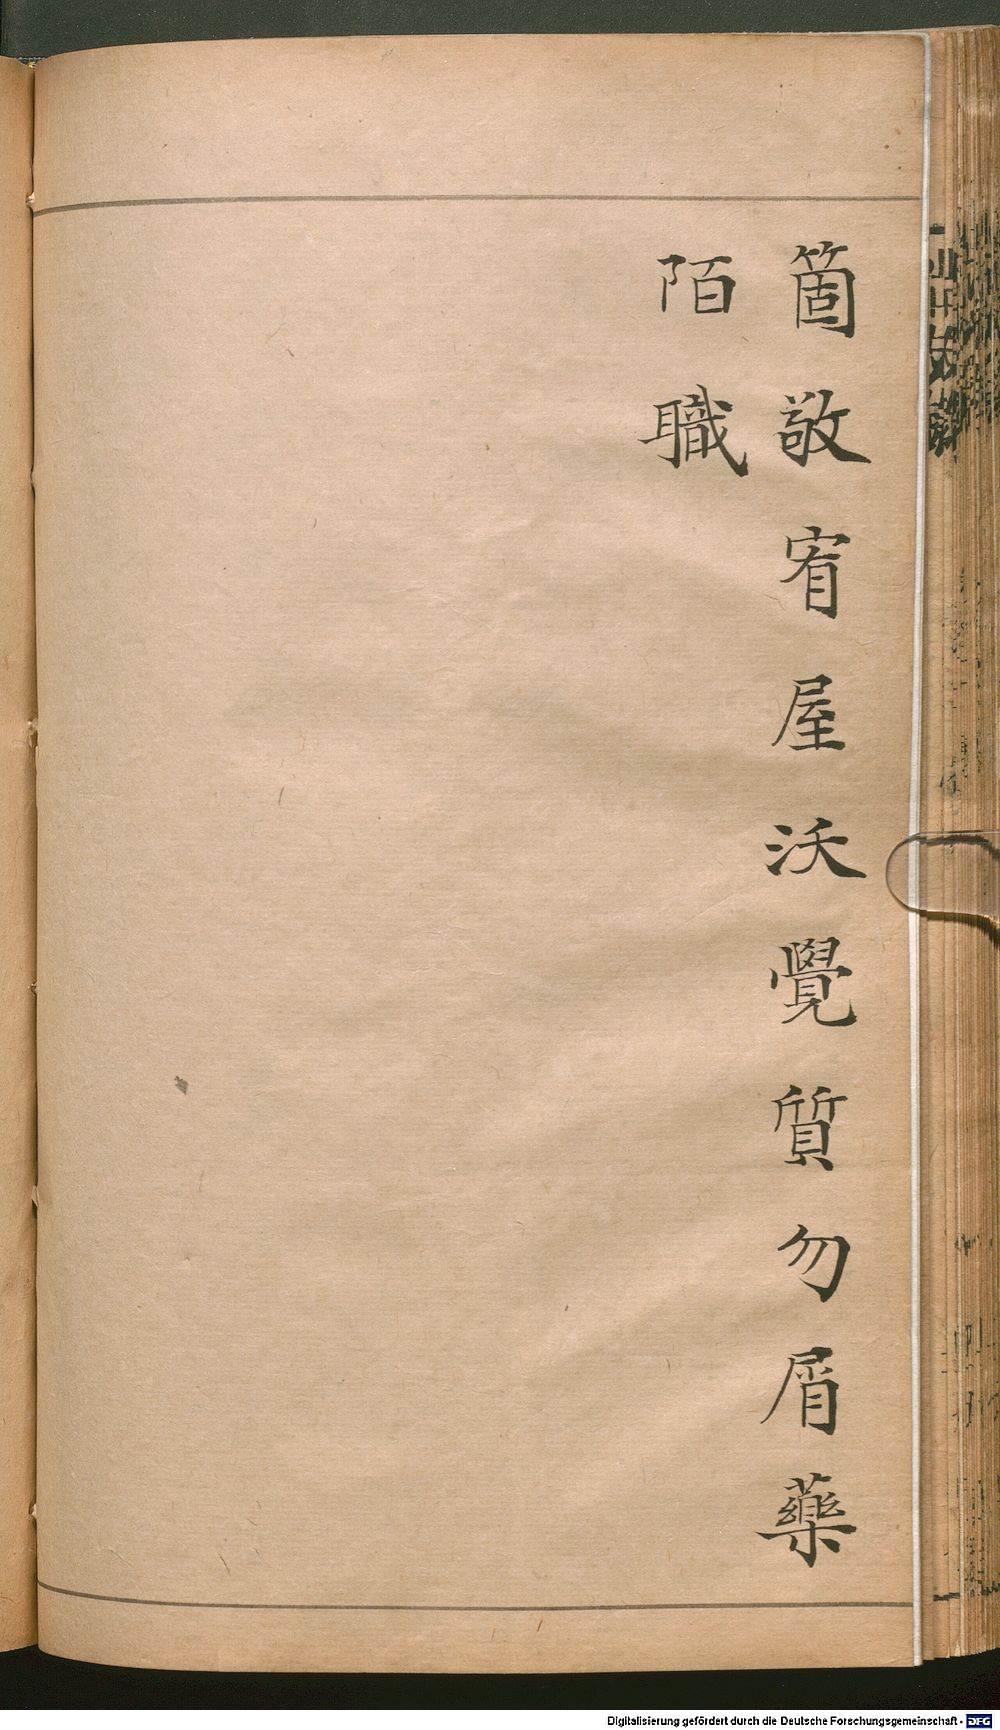 箇敬宥屋沃覺質勿屑藥
陌職
Digitalisierung gefördert durch die Deutsche Forschungsgemeinschaft - DFG